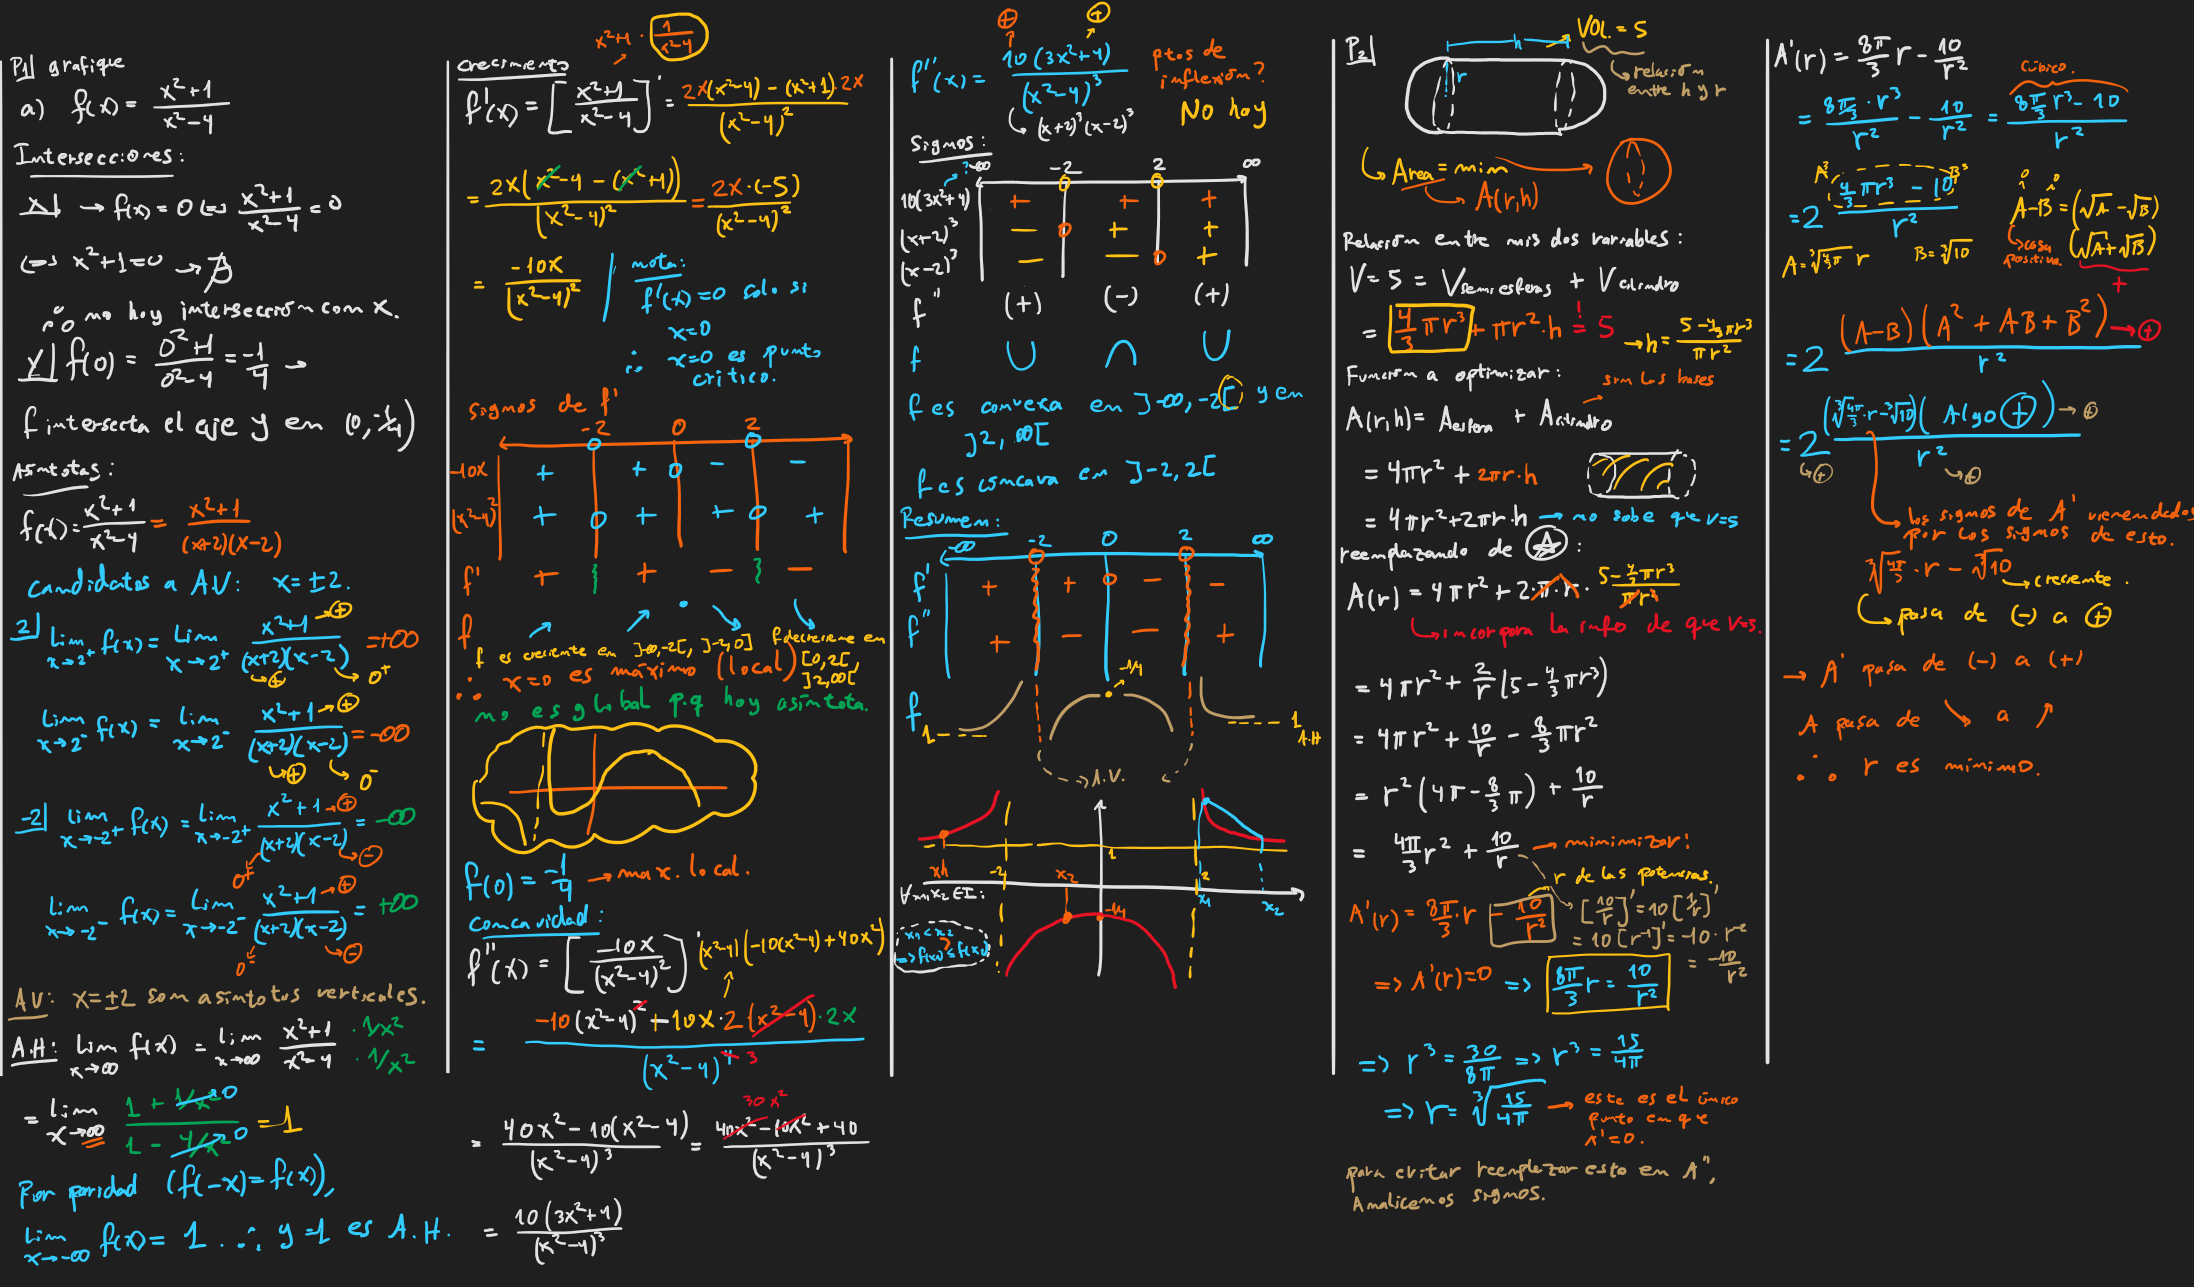 P1| grafique
a) f(x) = x²+1 / x²-4
Intersecciones:
x| → f(x) = 0 ⟺ x²+1 / x²-4 = 0
⟺ x²+1=0 → ∄
∴ no hay intersección con x.
y| f(0) = 0²+1 / 0²-4 = -1/4 →
f intersecta el eje y en (0, -1/4)
Asíntotas:
f(x) = x²+1 / x²-4 = x²+1 / (x+2)(x-2)
candidatos a A.V: x = ±2.
2| lim x→2⁺ f(x) = lim x→2⁺ x²+1 →⊕ / (x+2)(x-2) = +∞
↳⊕ ↳ 0⁺
lim x→2⁻ f(x) = lim x→2⁻ x²+1 →⊕ / (x+2)(x-2) = -∞
↳⊕ ↳ 0⁻
-2| lim x→-2⁺ f(x) = lim x→-2⁺ x²+1 →⊕ / (x+2)(x-2) = -∞
0⁺ ↳⊖
lim x→-2⁻ f(x) = lim x→-2⁻ x²+1 →⊕ / (x+2)(x-2) = +∞
0⁻ ↳⊖
AV: x=±2 son asíntotas verticales.
A.H: lim x→∞ f(x) = lim x→∞ x²+1 / x²-4 · 1/x² / · 1/x²
= lim x→∞ 1 + 1/x² →0 / 1 - 4/x² →0 = 1
Por paridad (f(-x)=f(x)),
lim x→-∞ f(x) = 1 ∴ y=1 es A.H.
x²+1 · 1/x²-4
crecimiento
f'(x) = [x²+1 / x²-4]' = 2x(x²-4) - (x²+1)·2x / (x²-4)²
= 2x(x²-4 - (x²+1)) / (x²-4)² = 2x·(-5) / (x²-4)²
= -10x / (x²-4)²
nota:
f'(x)=0 solo si
x=0
∴ x=0 es punto
crítico.
signos de f'
-2 0 2
-10x + + - -
(x²-4)² + + + +
f' + + - -
f ↗ ↗ ↘ ↘
f es creciente en ]-∞,-2[, ]-2,0]
f decreciente en
[0,2[,
]2,∞[
∴ x=0 es máximo (local)
no es global p.q hay asíntota.
f(0) = -1/4 → max. local.
concavidad:
f''(x) = [-10x / (x²-4)²]'
(x²-4)(-10(x²-4)+40x²)
= -10(x²-4)² + 10x·2(x²-4)·2x / (x²-4)⁴ 3
= 40x² - 10(x²-4) / (x²-4)³ = 30x² 40x² - 10x² + 40 / (x²-4)³
= 10(3x²+4) / (x²-4)³
⊕ ⊕
f''(x) = 10(3x²+4) / (x²-4)³
↳ (x+2)³(x-2)³
ptos de
inflexión?
No hay
Signos:
-∞ -2 2 ∞
10(3x²+4) + + +
(x+2)³ - + +
(x-2)³ - - +
f'' (+) (-) (+)
f ∪ ∩ ∪
f es convexa en ]-∞,-2[ y en
]2,∞[
f es cóncava en ]-2,2[
Resumen:
-∞ -2 0 2 ∞
f' + + - -
f'' + - - +
f
-1/4
1 1
A.H
A.V.
xh -2 x₂ 1 2 x₁ x₂
-1/4
∀x₁,x₂ ∈ I:
x₁ < x₂
=> f(x₁) ≤ f(x₂)
P2|
h
r
VOL. = 5
↳ relación
entre h y r
↳ Area = min
↳ A(r,h)
Relación entre mis dos variables:
V = 5 = Vsemiesferas + Vcilindro
= 4/3 πr³ + πr²·h =! 5 → h = 5 - 4/3πr³ / πr²
Función a optimizar:
sin las bases
A(r,h) = Aesfera + Acilindro
= 4πr² + 2πr·h
= 4πr² + 2πr·h → no sabe que V=5
reemplazando de ☆:
A(r) = 4πr² + 2·π·r · 5 - 4/3πr³ / πr²
↳ incorpora la info de que V=5.
= 4πr² + 2/r (5 - 4/3 πr³)
= 4πr² + 10/r - 8/3 πr²
= r²(4π - 8/3 π) + 10/r
= 4π/3 r² + 10/r → minimizar!
r de las potencias.
A'(r) = 8π/3·r - 10/r²
[10/r]' = 10[1/r]'
= 10[r⁻¹]' = -10·r⁻²
= -10/r²
=> A'(r)=0 => 8π/3 r = 10/r²
=> r³ = 30/8π => r³ = 15/4π
=> r = ³√15/4π → este es el único
punto en que
A'=0.
para evitar reemplazar esto en A'',
Analicemos signos.
A'(r) = 8π/3 r - 10/r²
cúbico.
= 8π/3·r³ / r² - 10/r² = 8π/3 r³ - 10 / r²
A³ B³
= 2 4/3πr³ - 10 / r²
A = ³√4/3π r B = ³√10
A-B = (√A - √B)
(√A + √B)
↳ cosa
positiva.
+
= 2 (A-B)(A² + AB + B²) → ⊕ / r²
= 2 (³√4π/3·r - ³√10)(Algo ⊕) → ⊕ / r²
↳⊕ ↳⊕
↳ los signos de A' vienen dados
por los signos de esto.
³√4π/3 · r - ³√10 → creciente.
↳ pasa de (-) a ⊕
→ A' pasa de (-) a (+)
A pasa de ↘ a ↗
∴ r es mínimo.